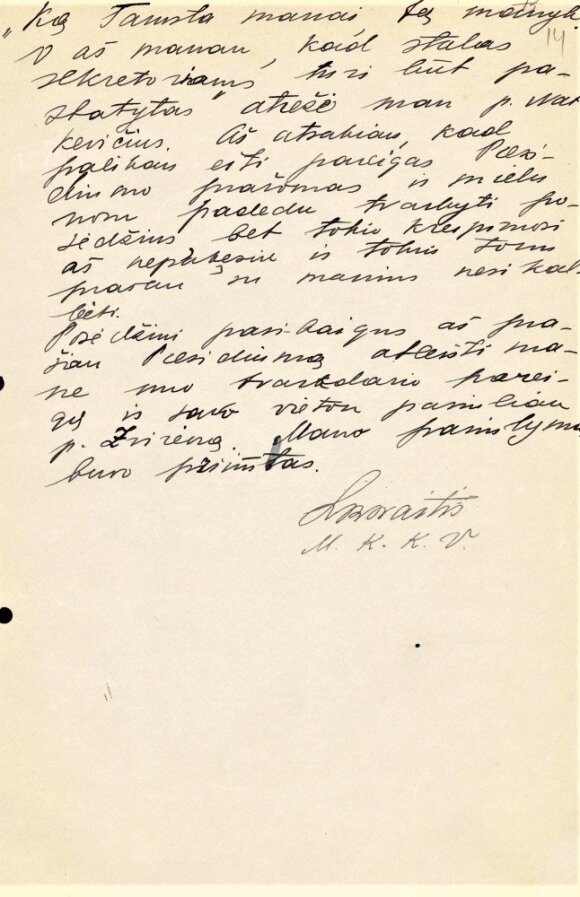 14
„Ką Tamsta manai tą
O aš manau, kad stalas
sekretoriams turi būt pa-
statytas" atrėžė man p. Nat
kevičius. Aš atsakiau, kad
palikau eiti pareigas Prezi-
diumo prašomas ir mielu
noru padedu tvarkyti po-
sėdžius bet tokio kreipimosi
aš nepakesiu ir tokiu tonu
prašau su manim nesikal-
bėti.
Posėdžiui pasibaigus aš pra-
šiau Prezidiumą atleisti ma-
ne nuo tvarkdario parei-
gų ir savo vieton pasiūliau
p. Mano pasiūlymas
buvo priimtas.
M. K. K. V.